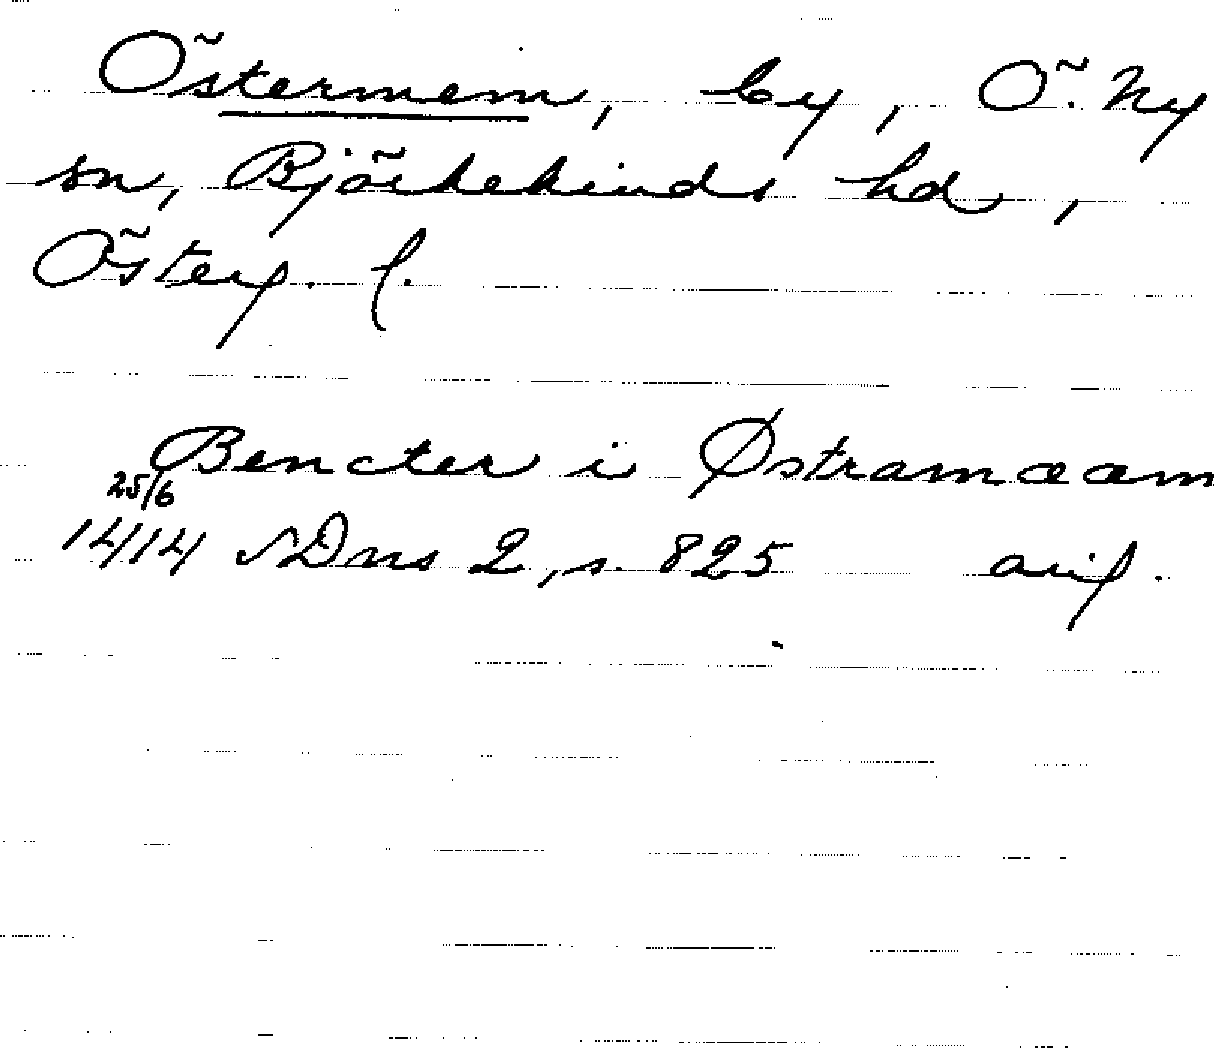 Östermem, by, Ö. Ny
sn, Björkekinds hd,
Österg. l.
Bencter i Østramææm
25/6
1414 SDns 2, s. 825 avs.